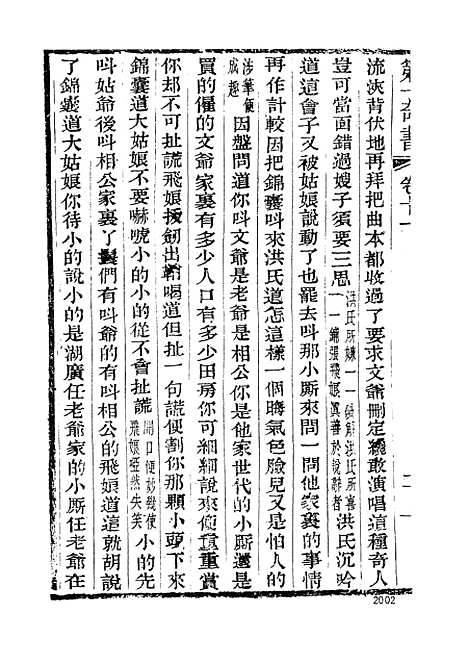 第一奇書 卷百一
流浹背伏地再拜把曲本都收過了要求文爺刪定纔敢演唱這種奇人
豈可當面錯過嫂子須要三思 洪氏所嫌一一 洪氏所喜 一一 飛娘眞善於說辭者 洪氏沉吟
道這會子又被姑娘說動了也罷去呌那小厮來問一問他家裏的事情
再作計較因把錦囊呌來洪氏道怎這樣一個晦氣色臉兒又是怕人的
涉筆便成趣 因盤問道你呌文爺是老爺是相公你是他家世代的小厮還是
買的僱的文爺家裏有多少人口有多少田房你可細細說來俺重重賞
你却不可扯謊飛娘拔劒出鞘喝道但扯一句謊便割你那顆小頭下來
錦囊道大姑娘不要嚇唬小的小的從不會扯謊 開口便妙幾使飛娘啞然失笑 小的先
呌姑爺後呌相公家裏丫鬟們有呌爺的有呌相公的飛娘道這就胡說
了錦囊道大姑娘你待小的說小的是湖廣任老爺家的小厮任老爺在
2002